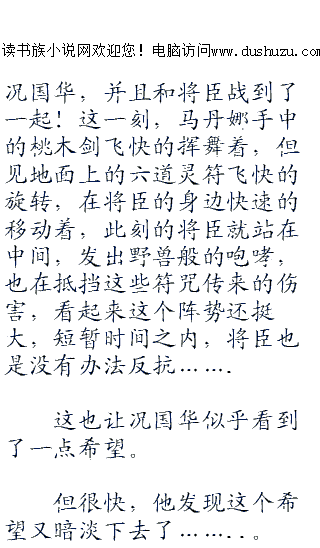 读书族小说网欢迎您！电脑访问www.dushuzu.com
况国华，并且和将臣战到了
一起！这一刻，马丹娜手中
的桃木剑飞快的挥舞着，但
见地面上的六道灵符飞快的
旋转，在将臣的身边快速的
移动着，此刻的将臣就站在
中间，发出野兽般的咆哮，
也在抵挡这些符咒传来的伤
害，看起来这个阵势还挺
大，短暂时间之内，将臣也
是没有办法反抗…….
这也让况国华似乎看到
了一点希望。
但很快，他发现这个希
望又暗淡下去了……..。